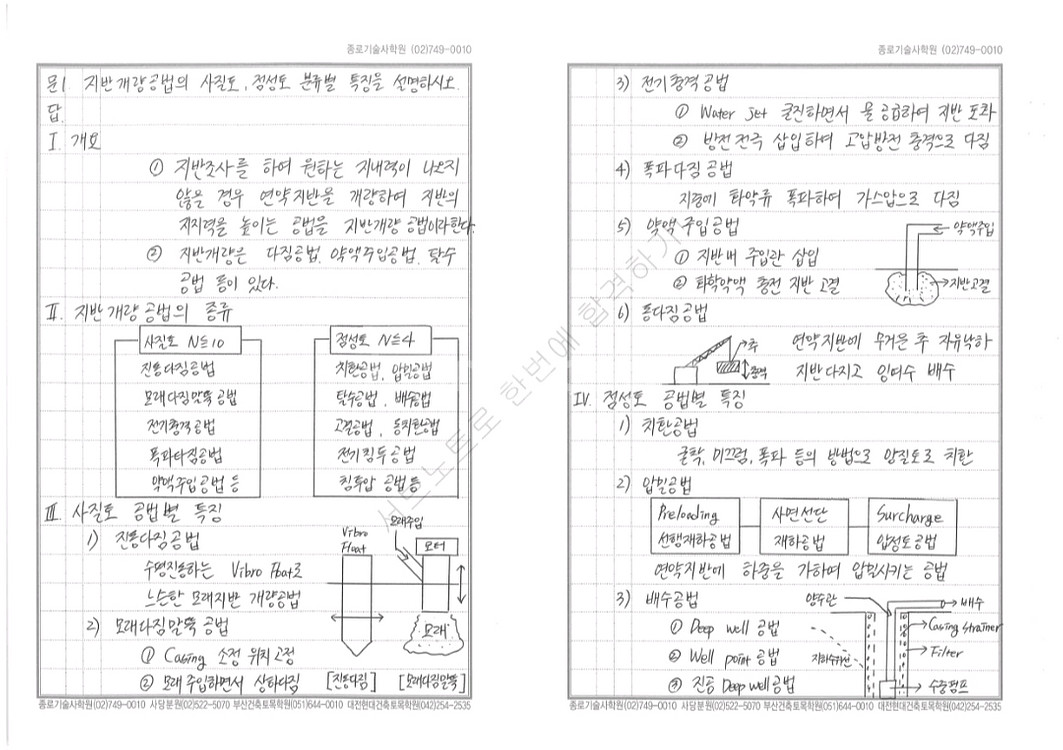 종로기술사학원 (02)749-0010
문1. 지반개량공법의 사질토, 점성토 분류별 특징을 설명하시오.
답.
I. 개요
① 지반조사를 하여 원하는 지내력이 나오지
않을 경우 연약지반을 개량하여 지반의
지지력을 높이는 공법을 지반개량 공법이라한다.
② 지반개량은 다짐공법, 약액주입공법, 탈수
공법 등이 있다.
II. 지반개량공법의 종류
사질토 N≤10
진동다짐공법
모래다짐말뚝 공법
전기충격공법
폭파다짐공법
약액주입공법 등
점성토 N≤4
치환공법, 압밀공법
탈수공법, 배수공법
고결공법, 동치환공법
전기침투공법
침투압 공법 등
III. 사질토 공법별 특징
1) 진동다짐공법
수평진동하는 Vibro Float로
느슨한 모래지반 개량공법
2) 모래다짐말뚝 공법
① Casing 소정 위치 고정
② 모래 주입하면서 상하다짐
Vibro
Float
모래주입
모터
모래
[진동다짐] [모래다짐말뚝]
종로기술사학원(02)749-0010 사당분원(02)522-5070 부산건축토목학원(051)644-0010 대전현대건축토목학원(042)254-2535
종로기술사학원 (02)749-0010
3) 전기충격공법
① Water Jet 굴진하면서 물 공급하여 지반 포화
② 방전전극 삽입하여 고압방전 충격으로 다짐
4) 폭파다짐공법
지중에 화약류 폭파하여 가스압으로 다짐
5) 약액주입공법
① 지반내 주입관 삽입
② 화학약액 충전 지반고결
약액주입
지반고결
6) 동다짐공법
연약지반에 무거운 추 자유낙하
지반다지고 잉여수 배수
추
IV. 점성토 공법별 특징
1) 치환공법
굴착, 미끄럼, 폭파 등의 방법으로 양질토로 치환
2) 압밀공법
Preloading
선행재하공법
사면선단
재하공법
Surcharge
압성토공법
연약지반에 하중을 가하여 압밀시키는 공법
3) 배수공법
① Deep well 공법
② Well point 공법
③ 진공 Deep well공법
양수관
배수
Casing strainer
Filter
지하수위선
수중펌프
종로기술사학원(02)749-0010 사당분원(02)522-5070 부산건축토목학원(051)644-0010 대전현대건축토목학원(042)254-2535
서브노트로 한번에 합격하기